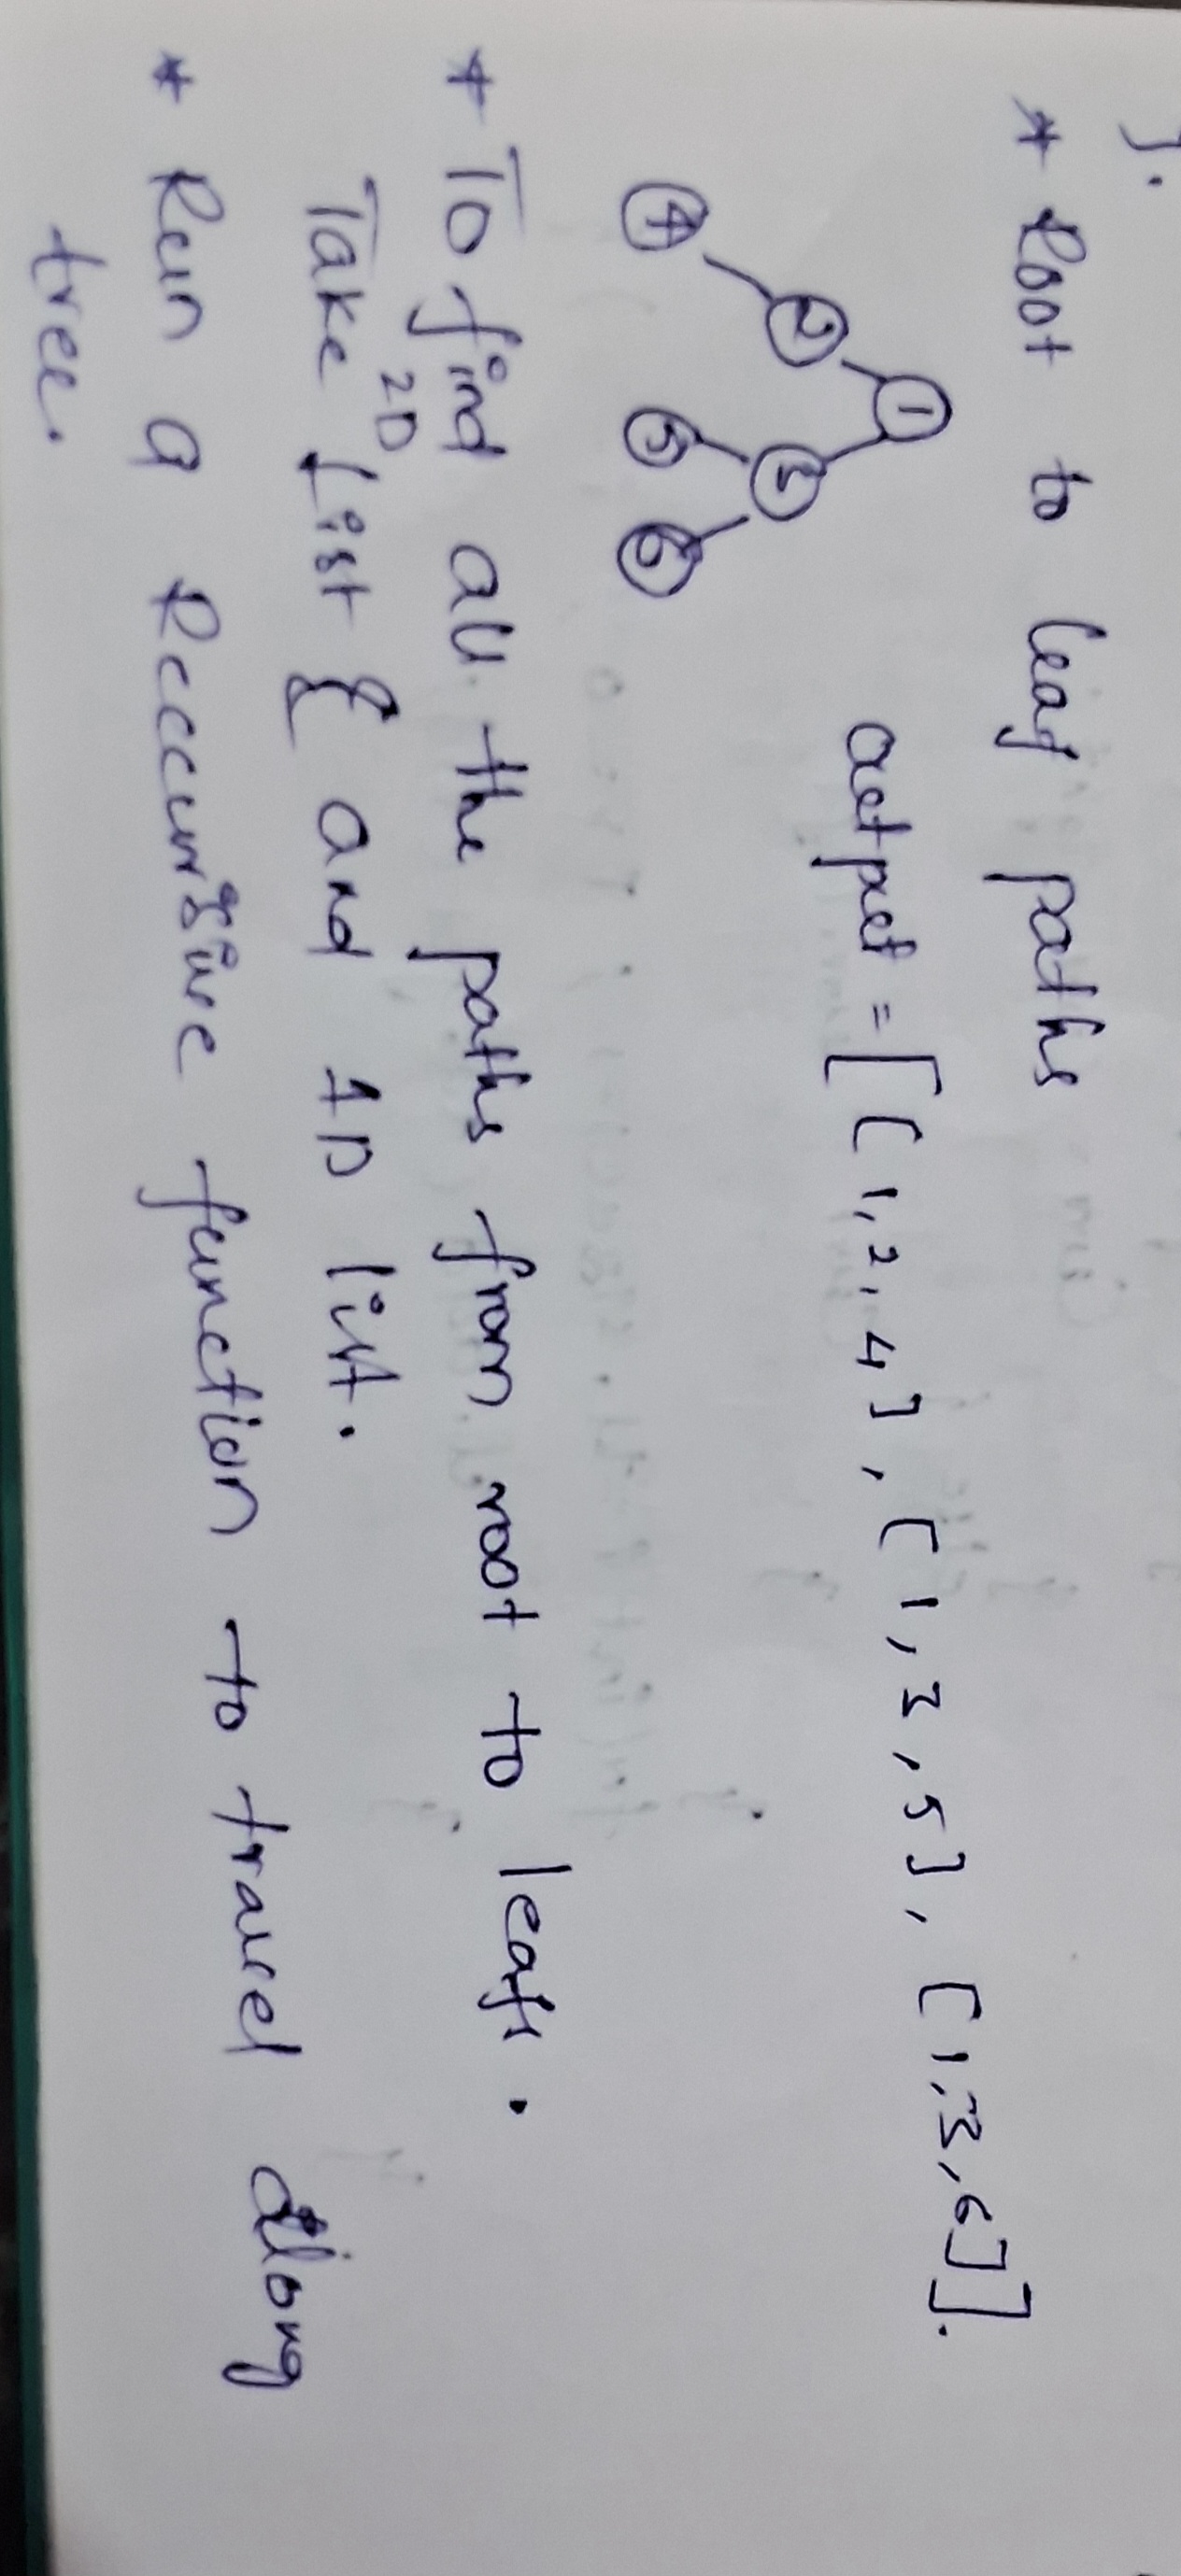 }.
* Root to leaf paths
1
2
3
4
5
6
output = [[1,2,4], [1,3,5], [1,3,6]].
* To find all the paths from root to leafs.
2D
Take List & and 1D list.
* Run a Reccursive function to travel along
tree.